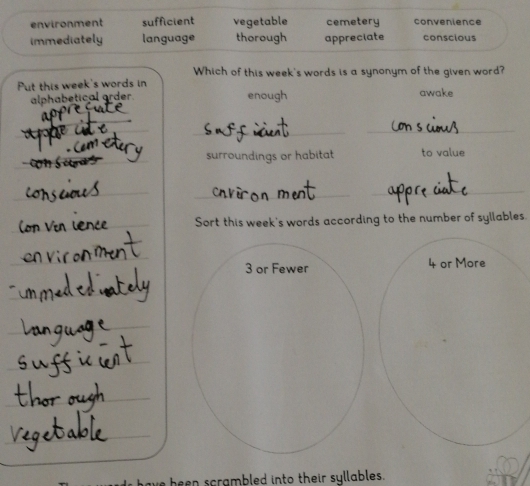 environment sufficient vegetable cemetery convenience
immediately language thorough appreciate conscious
Put this week's words in
alphabetical order.
appreciate
appe ciate
cemetery
conscious
conscious
convenience
environment
immedediately
language
sufficient
thorough
vegetable
Which of this week's words is a synonym of the given word?
enough awake
sufficient conscious
surroundings or habitat to value
environment appreciate
Sort this week's words according to the number of syllables.
3 or Fewer 4 or More
words have been scrambled into their syllables.